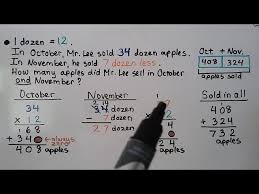 • 1 dozen = 12.
In October, Mr. Lee sold 34 dozen apples.
In November, he sold 7 dozen less.
How many apples did Mr. Lee sell in October and November?
Oct. + Nov.
408 324
apples sold
October
34
× 12
168
+ 340
408 apples
always zero
November
2 14
34 dozen
- 7 dozen
27 dozen
1
7
× 12
4
+ 0
apples
Sold in all
408
+ 324
732
apples